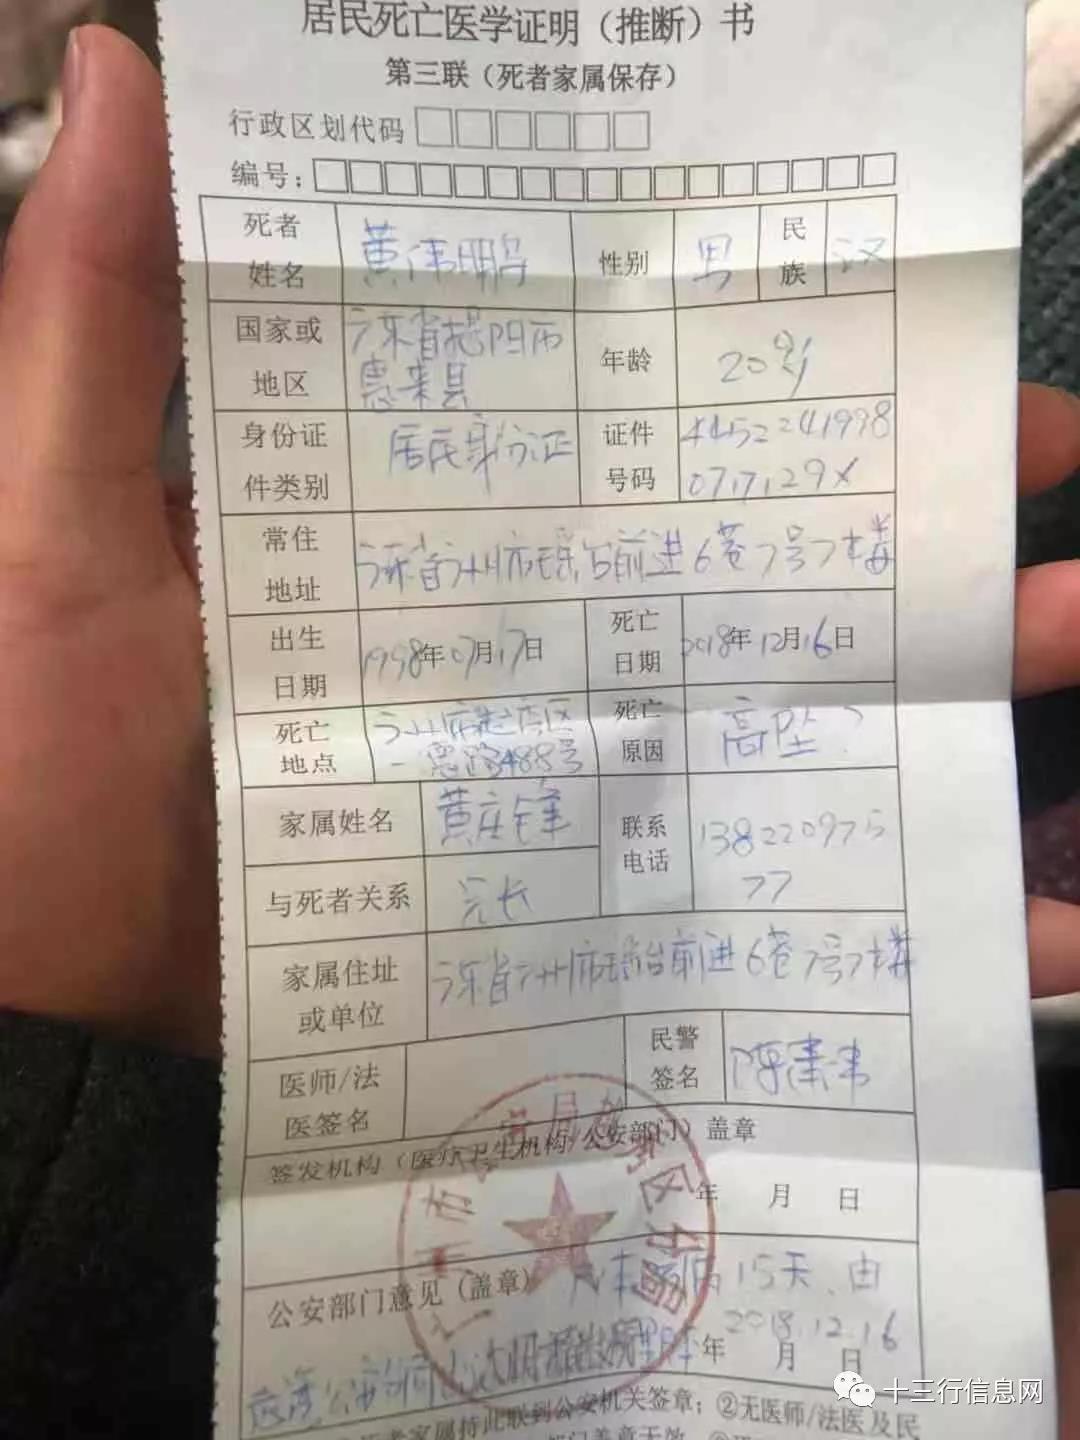 居民死亡医学证明（推断）书
第三联（死者家属保存）
行政区划代码
编号：
死者姓名 黄伟鹏 性别 男 民族 汉
国家或地区 广东省揭阳市惠来县 年龄 20岁
身份证件类别 居民身份证 证件号码 4452241998
0717129X
常住地址 广东省广州市瑶台前进6巷7号7楼
出生日期 1998年07月17日 死亡日期 2018年12月16日
死亡地点 广州市越秀区
一德路488号 死亡原因 高坠？
家属姓名 黄庄锋 联系电话 138220975
77
与死者关系 兄长
家属住址或单位 广东省广州市瑶台前进6巷7号7楼
医师/法医签名 民警签名 陈
签发机构（医疗卫生机构/公安部门）盖章
年 月 日
公安部门意见（盖章） 15天、由
2018.12.16
年 月 日
家属持此联到公安机关签章；②无医师/法医及民
部门盖章无效
十三行信息网